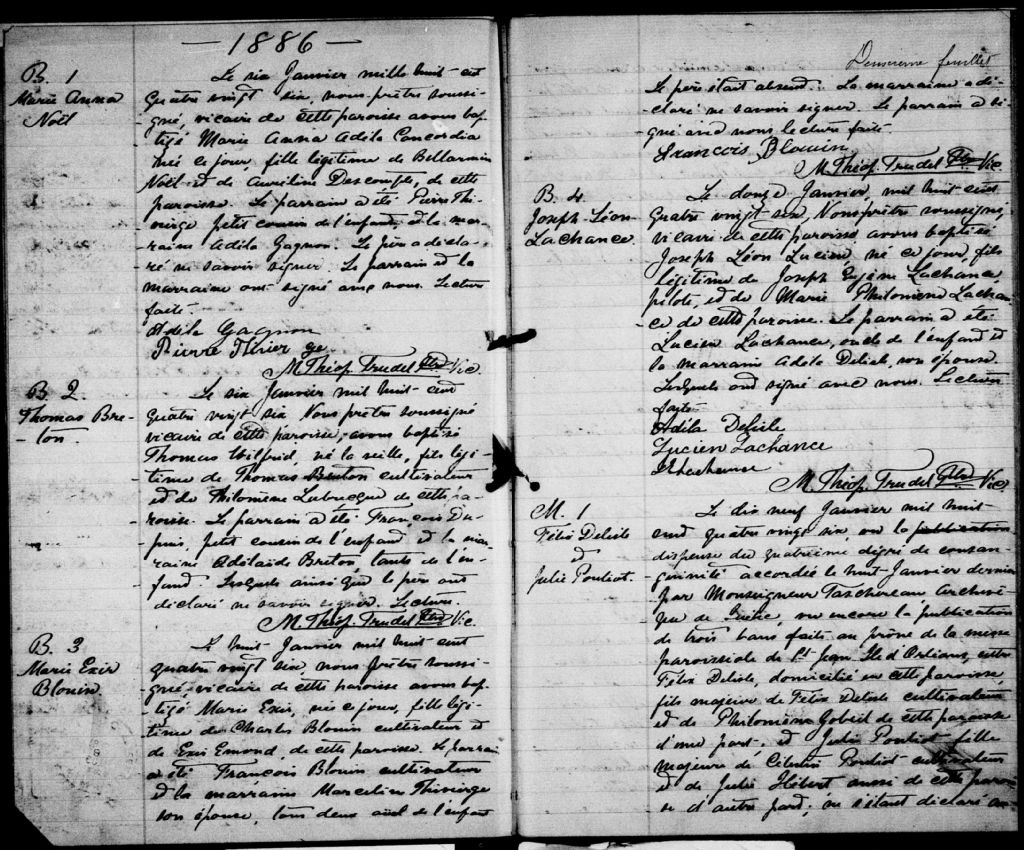 — 1886 —
B. 1
Marie Anna
Noël
Le six Janvier mille huit-cent
quatre vingt six, nous prêtre soussi-
gné, vicaire de cette paroisse avons bap-
tisé Marie Anna Adéla Concordia
née ce jour, fille légitime de Bellarmin
Noël et de Aureline Descomps, de cette
paroisse. Le parrain a été Pierre Thi-
vierge petit cousin de l'enfant, et la mar-
raine Adéla Gagnon. Le père a décla-
ré ne savoir signer. Le parrain et la
marraine ont signé avec nous. Lecture
faite.
Adéla Gagnon
Pierre Thivierge
M. Théop. Trudel Ptre Vic.
B. 2.
Thomas Bre-
ton.
Le six Janvier mil huit cent
quatre vingt six Nous prêtre soussigné
vicaire de cette paroisse, avons baptisé
Thomas Wilfrid, né la veille, fils légi-
time de Thomas Breton cultivateur
et de Philomène Labrecque de cette pa-
roisse. Le parrain a été François Du-
puis, petit cousin de l'enfant et la mar-
raine Adélaïde Breton, tante de l'en-
fant. Lesquels ainsi que le père ont
déclaré ne savoir signer. Lecture.
M. Théop. Trudel Ptre Vic.
B. 3
Marie Exir
Blouin.
Le huit Janvier mil huit cent
quatre vingt six, nous prêtre soussi-
gné, vicaire de cette paroisse avons bap-
tisé Marie Exir, née ce jour, fille légi-
time de Charles Blouin cultivateur et
de Exir Emond, de cette paroisse. Le parrain
a été François Blouin cultivateur
et la marraine Marceline Thivierge
son épouse, tous deux aïeul de l'enfant
Deuxieme feuillet
Le père étant absent. La marraine a dé-
claré ne savoir signer. Le parrain a si-
gné avec nous lecture faite
François Blouin
M. Théop. Trudel Ptre Vic
B. 4
Joseph Léon
Lachance.
Le douze Janvier, mil huit cent
quatre vingt six, Nous prêtre soussigné,
vicaire de cette paroisse avons baptisé
Joseph Léon Lucien, né ce jour, fils
légitime de Joseph Eugène Lachance
pilote, et de Marie Philomène Lachan-
ce de cette paroisse. Le parrain a été
Lucien Lachance, oncle de l'enfant et
la marraine Adéla Delisle, son épouse.
Lesquels ont signé avec nous. Lecture
faite
Adéla Delisle
Lucien Lachance
M. Théop. Trudel Ptre Vic
M. 1
Félix Delisle
et
Julie Pouliot.
Le dix neuf Janvier mil huit
cent quatre vingt six, vu la publication
dispense du quatrième dégré de consan-
guinité accordée le huit Janvier dernier
par Monseigneur Taschereau Archevê-
que de Québec, vu encore la publication
de trois bans faite au prône de la messe
paroissiale de St Jean Ile d'Orléans, entre
Félix Delisle, domicilié en cette paroisse,
fils majeur de Félix Delisle cultivateur
et de Philomène Gobeil de cette paroisse
d'une part, et Julie Pouliot fille
majeure de Pouliot cultivateur
et de Julie Hébert aussi de cette parois-
se d'autre part; ne s'étant déclaré au-